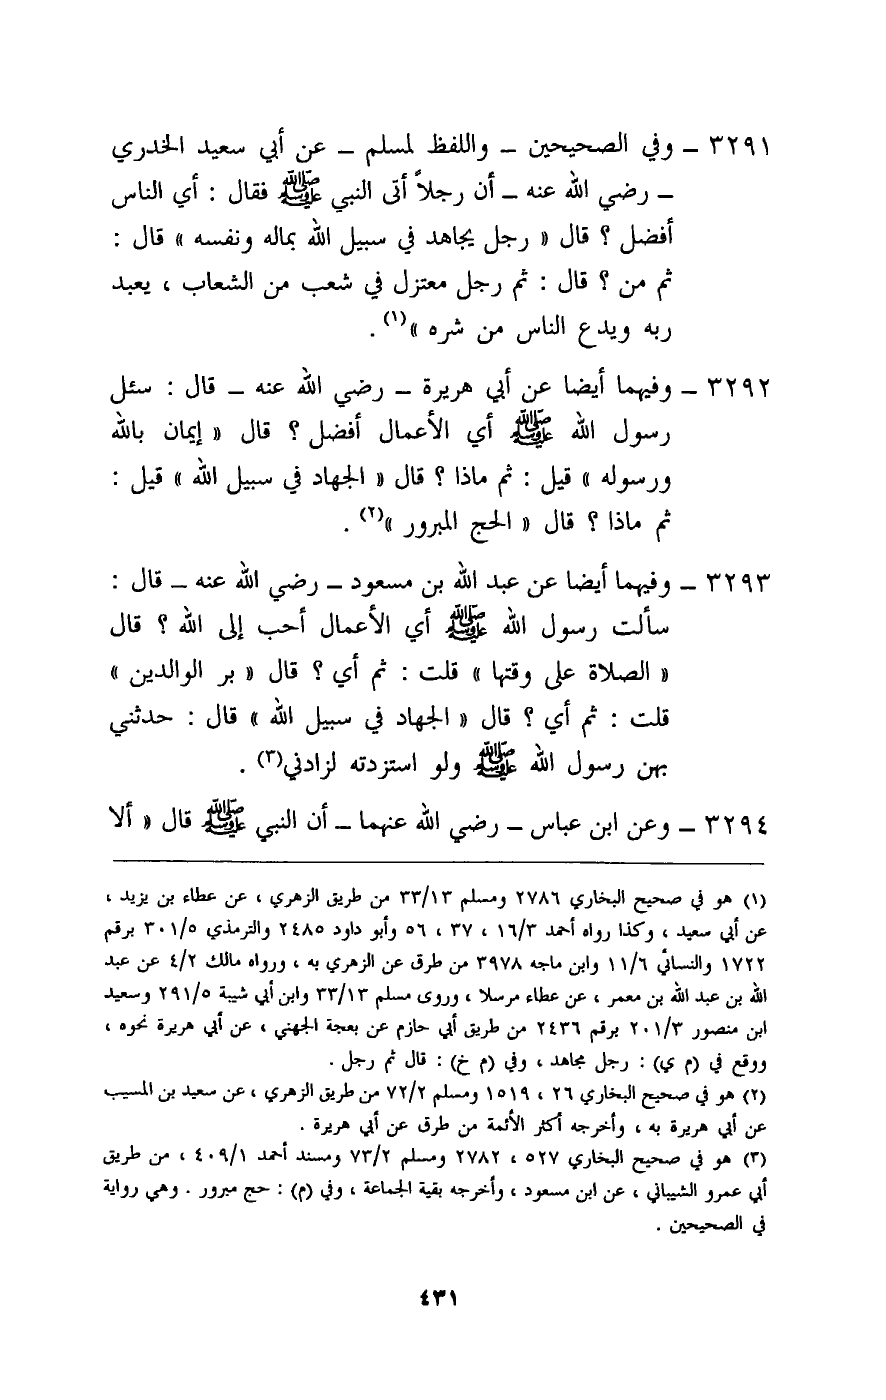 ٣٢٩١ – وفي الصحيحين – واللفظ لمسلم – عن أبي سعيد الخدري
– رضي الله عنه – أن رجلاً أتى النبي ﷺ فقال : أي الناس
أفضل ؟ قال « رجل يجاهد في سبيل الله بماله ونفسه » قال :
ثم من ؟ قال : ثم رجل معتزل في شعب من الشعاب ، يعبد
ربه ويدع الناس من شره »(١) .
٣٢٩٢ – وفيهما أيضا عن أبي هريرة – رضي الله عنه – قال : سئل
رسول الله ﷺ أي الأعمال أفضل ؟ قال « إيمان بالله
ورسوله » قيل : ثم ماذا ؟ قال « الجهاد في سبيل الله » قيل :
ثم ماذا ؟ قال « الحج المبرور »(٢) .
٣٢٩٣ – وفيهما أيضا عن عبد الله بن مسعود – رضي الله عنه – قال :
سألت رسول الله ﷺ أي الأعمال أحب إلى الله ؟ قال
« الصلاة على وقتها » قلت : ثم أي ؟ قال « بر الوالدين »
قلت : ثم أي ؟ قال « الجهاد في سبيل الله » قال : حدثني
بهن رسول الله ﷺ ولو استزدته لزادني(٣) .
٣٢٩٤ – وعن ابن عباس – رضي الله عنهما – أن النبي ﷺ قال « ألا
(١) هو في صحيح البخاري ٢٧٨٦ ومسلم ٣٣/١٣ من طريق الزهري ، عن عطاء بن يزيد ،
عن أبي سعيد ، وكذا رواه أحمد ١٦/٣ ، ٣٧ ، ٥٦ وأبو داود ٢٤٨٥ والترمذي ٣٠١/٥ برقم
١٧٢٢ والنسائي ١١/٦ وابن ماجه ٣٩٧٨ من طرق عن الزهري به ، ورواه مالك ٤/٢ عن عبد
الله بن عبد الله بن معمر ، عن عطاء مرسلا ، وروى مسلم ٣٣/١٣ وابن أبي شيبة ٢٩١/٥ وسعيد
ابن منصور ٢٠١/٣ برقم ٢٤٣٦ من طريق أبي حازم عن بعجة الجهني ، عن أبي هريرة نحوه ،
ووقع في (م ي) : رجل مجاهد ، وفي (م خ) : قال ثم رجل .
(٢) هو في صحيح البخاري ٢٦ ، ١٥١٩ ومسلم ٧٢/٢ من طريق الزهري ، عن سعيد بن المسيب
عن أبي هريرة به ، وأخرجه أكثر الأئمة من طرق عن أبي هريرة .
(٣) هو في صحيح البخاري ٥٢٧ ، ٢٧٨٢ ومسلم ٧٣/٢ ومسند أحمد ٤٠٩/١ ، من طريق
أبي عمرو الشيباني ، عن ابن مسعود ، وأخرجه بقية الجماعة ، وفي (م) : حج مبرور . وهي رواية
في الصحيحين .
٤٣١